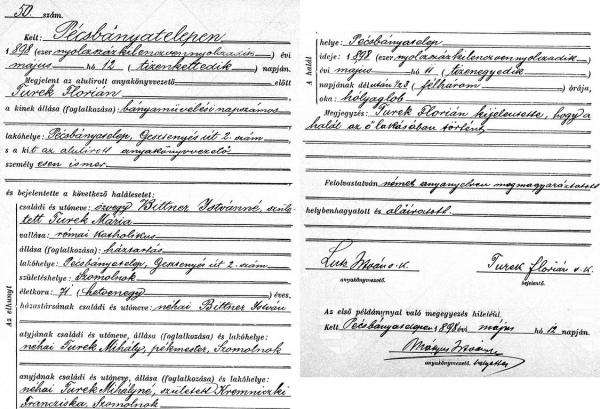 50. szám.
Kelt: Pécsbányatelepen
1898 (ezer nyolczszázkilenczvennyolczadik) évi
május hó 12 (tizenkettedik) napján.
Megjelent az alulirott anyakönyvvezető előtt
Turek Florián
a kinek állása (foglalkozása): bányamüvelési napszámos
lakóhelye: Pécsbányatelep, Gesztenyés út 2. szám
s a kit az alulirott anyakönyvvezető
személyesen ismer
és bejelentette a következő halálesetet:
Az elhunyt
családi és utóneve: özvegy Bittner Istvánné, szüle
tett Turek Mária
vallása: római katholikus
állása (foglalkozása): háztartás
lakóhelye: Pécsbányatelep, Gesztenyés út 2. szám
születéshelye: Szomolnok
életkora: 71 (hetvenegy) éves.
házastársának családi és utóneve: néhai Bittner István
atyjának családi és utóneve, állása (foglalkozása) és lakóhelye:
néhai Turek Mihály, pékmester, Szomolnok
anyjának családi és utóneve, állása (foglalkozása) és lakóhelye:
néhai Turek Mihályné, született Kremniczki
Franciska, Szomolnok
A halál
helye: Pécsbányatelep
ideje: 1898 (ezer nyolczszázkilenczvennyolczadik)
évi május hó 11 (tizenegyedik)
napjának délután 1/2 3 (félhárom) órája,
oka: hólyaglob
Megjegyzés: Turek Florián kijelentette, hogy a
halál az ő lakásában történt
Felolvastatván német anyanyelven megmagyaráztatott
helybenhagyatott és aláiratott.
Lutz István s.k.
anyakönyvvezető.
Turek Florián s.k.
bejelentő.
Az első példánynyal való megegyezés hiteléül.
Kelt Pécsbányatelepen 1898 évi május hó 12 napján.
István
anyakönyvvezető helyettes